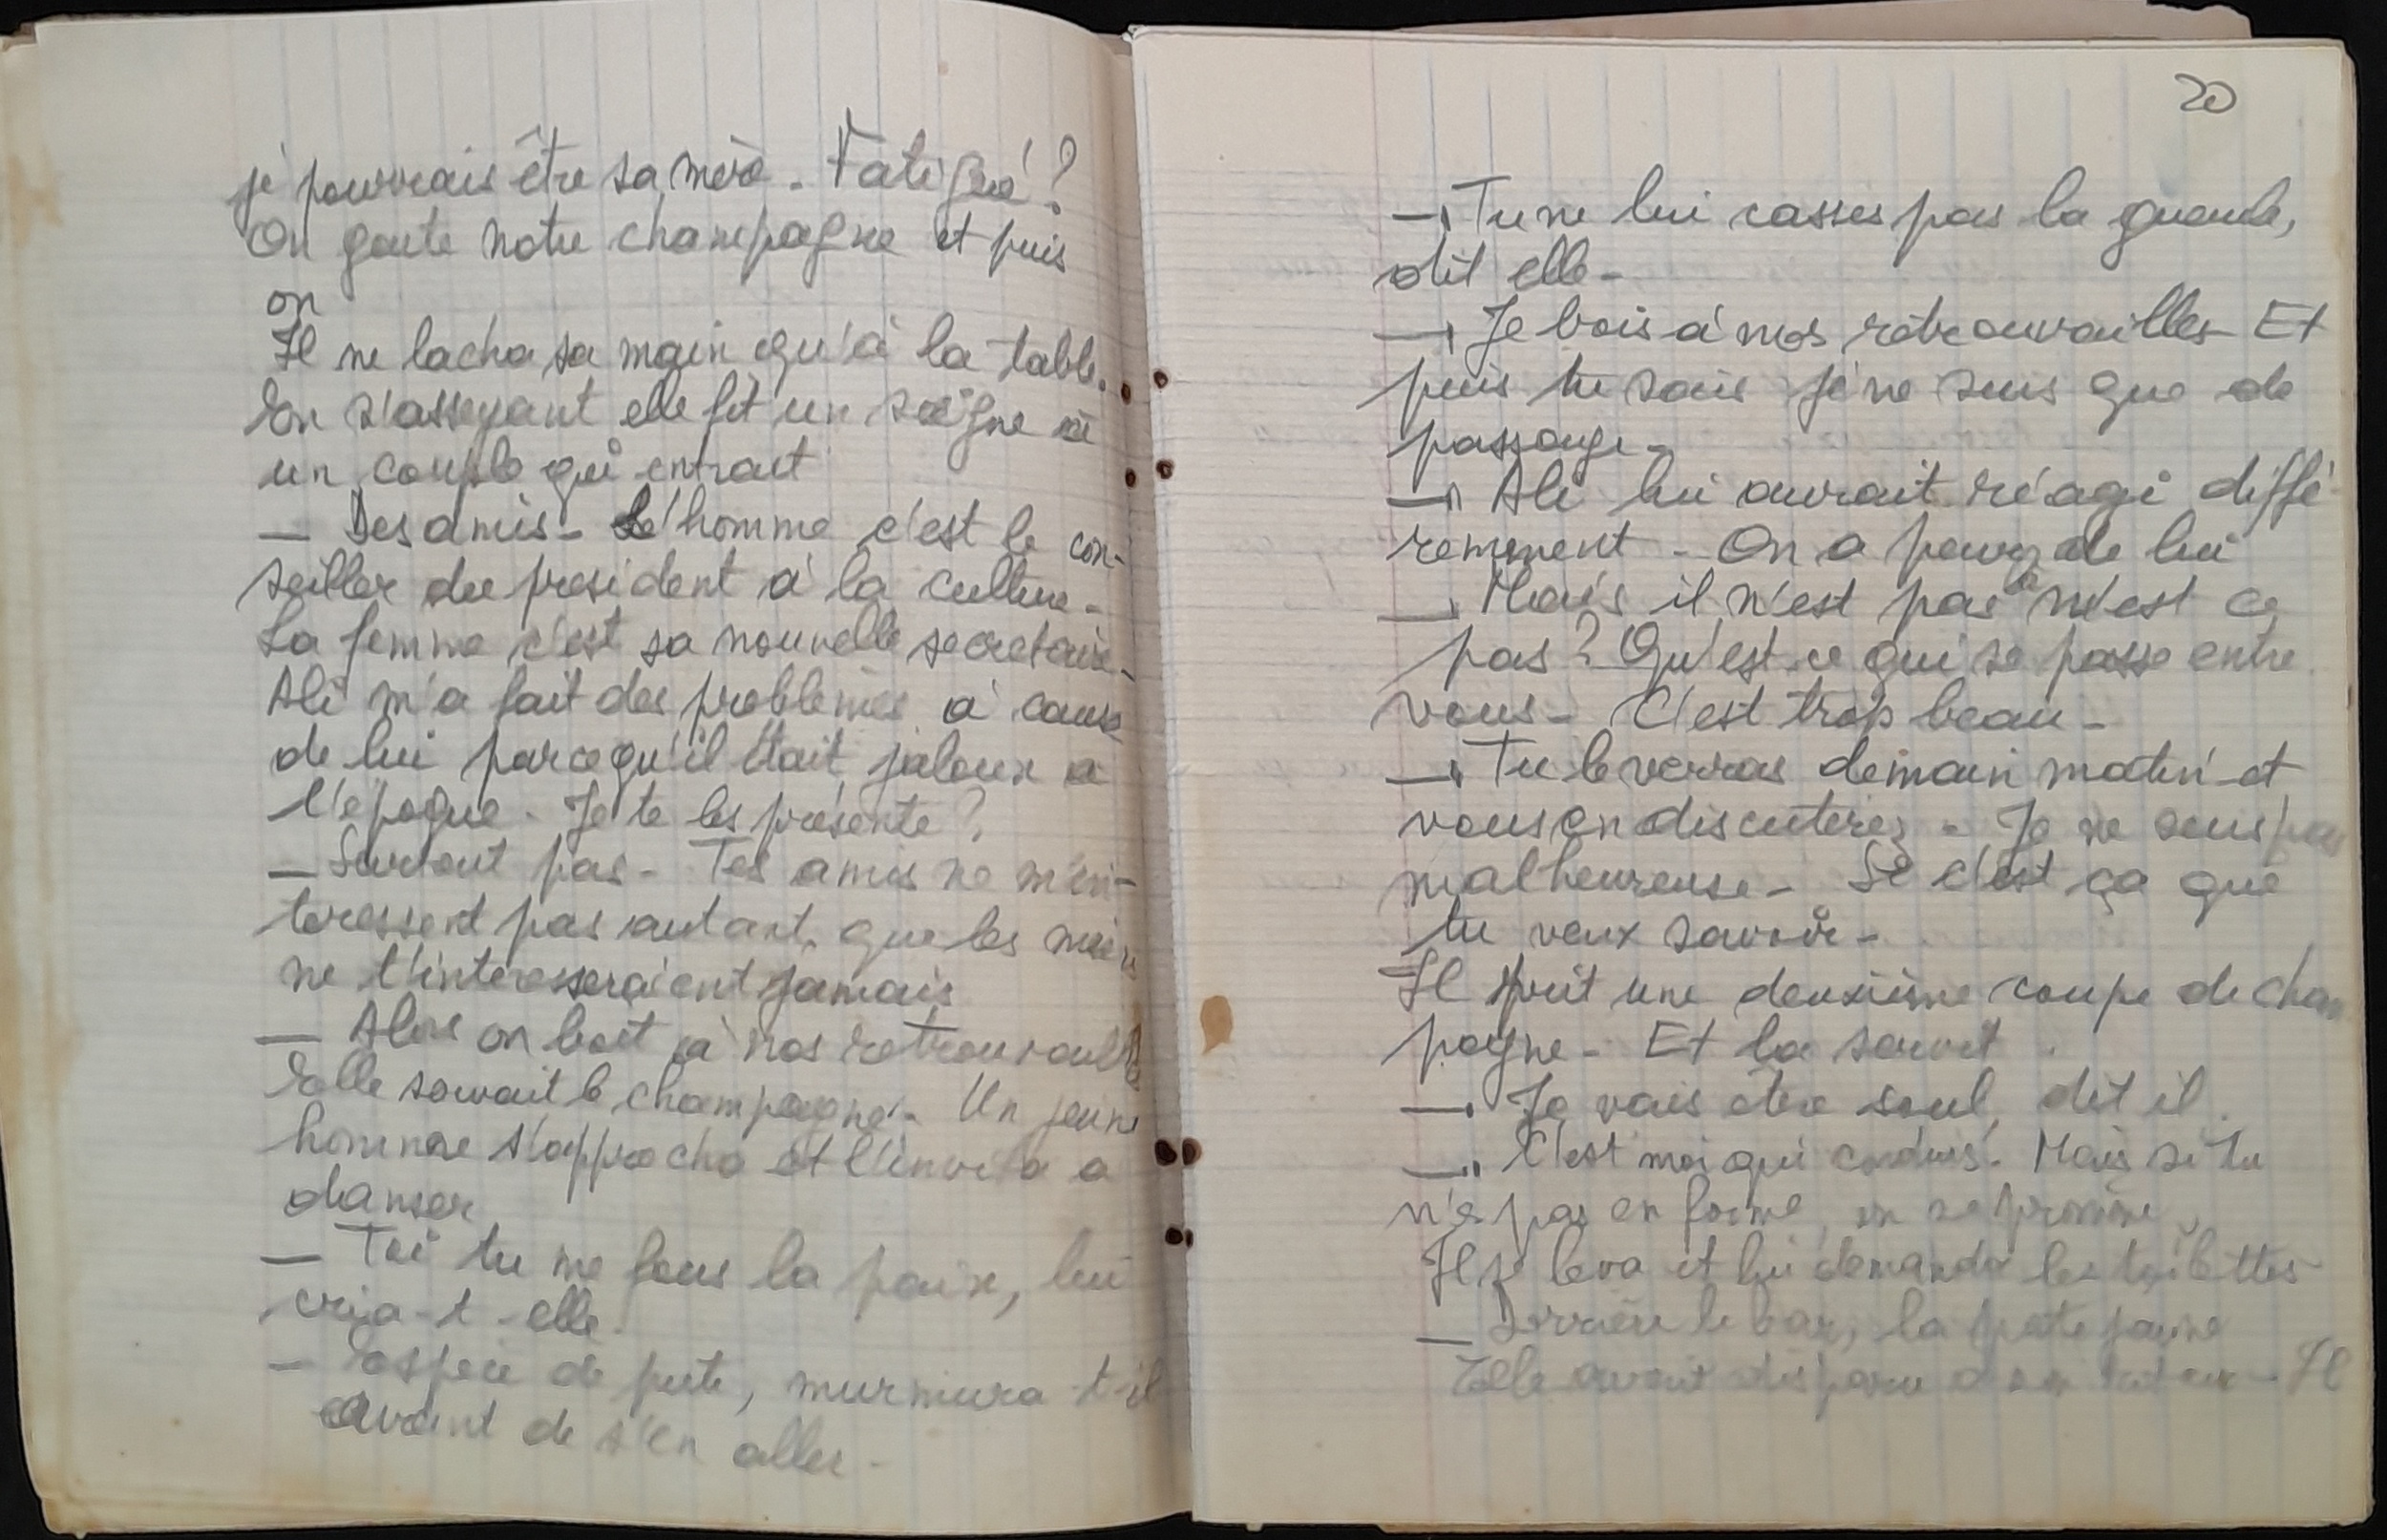 je pourrais être sa mère. Fatigué?
On goute notre champagne et puis
on
Il ne lacha sa main qu'à la table.
En s'asseyant elle fit un signe à
un couple qui entrait
— Des amis - L'homme c'est le con-
seiller du president à la culture -
La femme c'est sa nouvelle secretaire -
Ali m'a fait des problèmes à cause
de lui parcequ'il était jaloux a
l'époque. Je te les présente?
— Surtout pas - Tes amis ne m'in-
teressent pas autant, que les miens
ne t'interesseraient jamais
— Alors on boit à nos retrouvailles
Elle servait le champagne. Un jeune
homme s'approcha et l'invita a
danser
— Toi tu me fous la paix, lui
cria-t-elle.
— Espece de pute, murmura-t-il
avant de s'en aller -
20
— Tu ne lui casses pas la gueule,
dit elle -
— Je bois à nos retrouvailles Et
puis tu sais je ne suis que de
passage -
— Ali lui aurait réagi diffé-
remment - On a peur de lui
— Mais il n'est pas là n'est ce
pas? Qu'est-ce qui se passe entre
vous - C'est trop beau -
— Tu le verras demain matin et
vous en discuterez - Je ne suis pas
malheureuse - Si c'est ça que
tu veux savoir -
Il prit une deuxième coupe de cham
pagne - Et la servit.
— Je vais être soul, dit il.
— C'est moi qui conduis. Mais si tu
n'es pas en forme, on se promène
Il se leva et lui demanda les toilettes
— Derrière le bar, la porte jaune
Elle avait disparu a son retour - Il